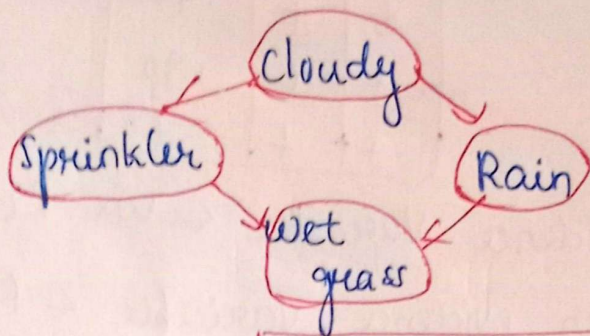 Cloudy
Sprinkler
Rain
Wet
grass